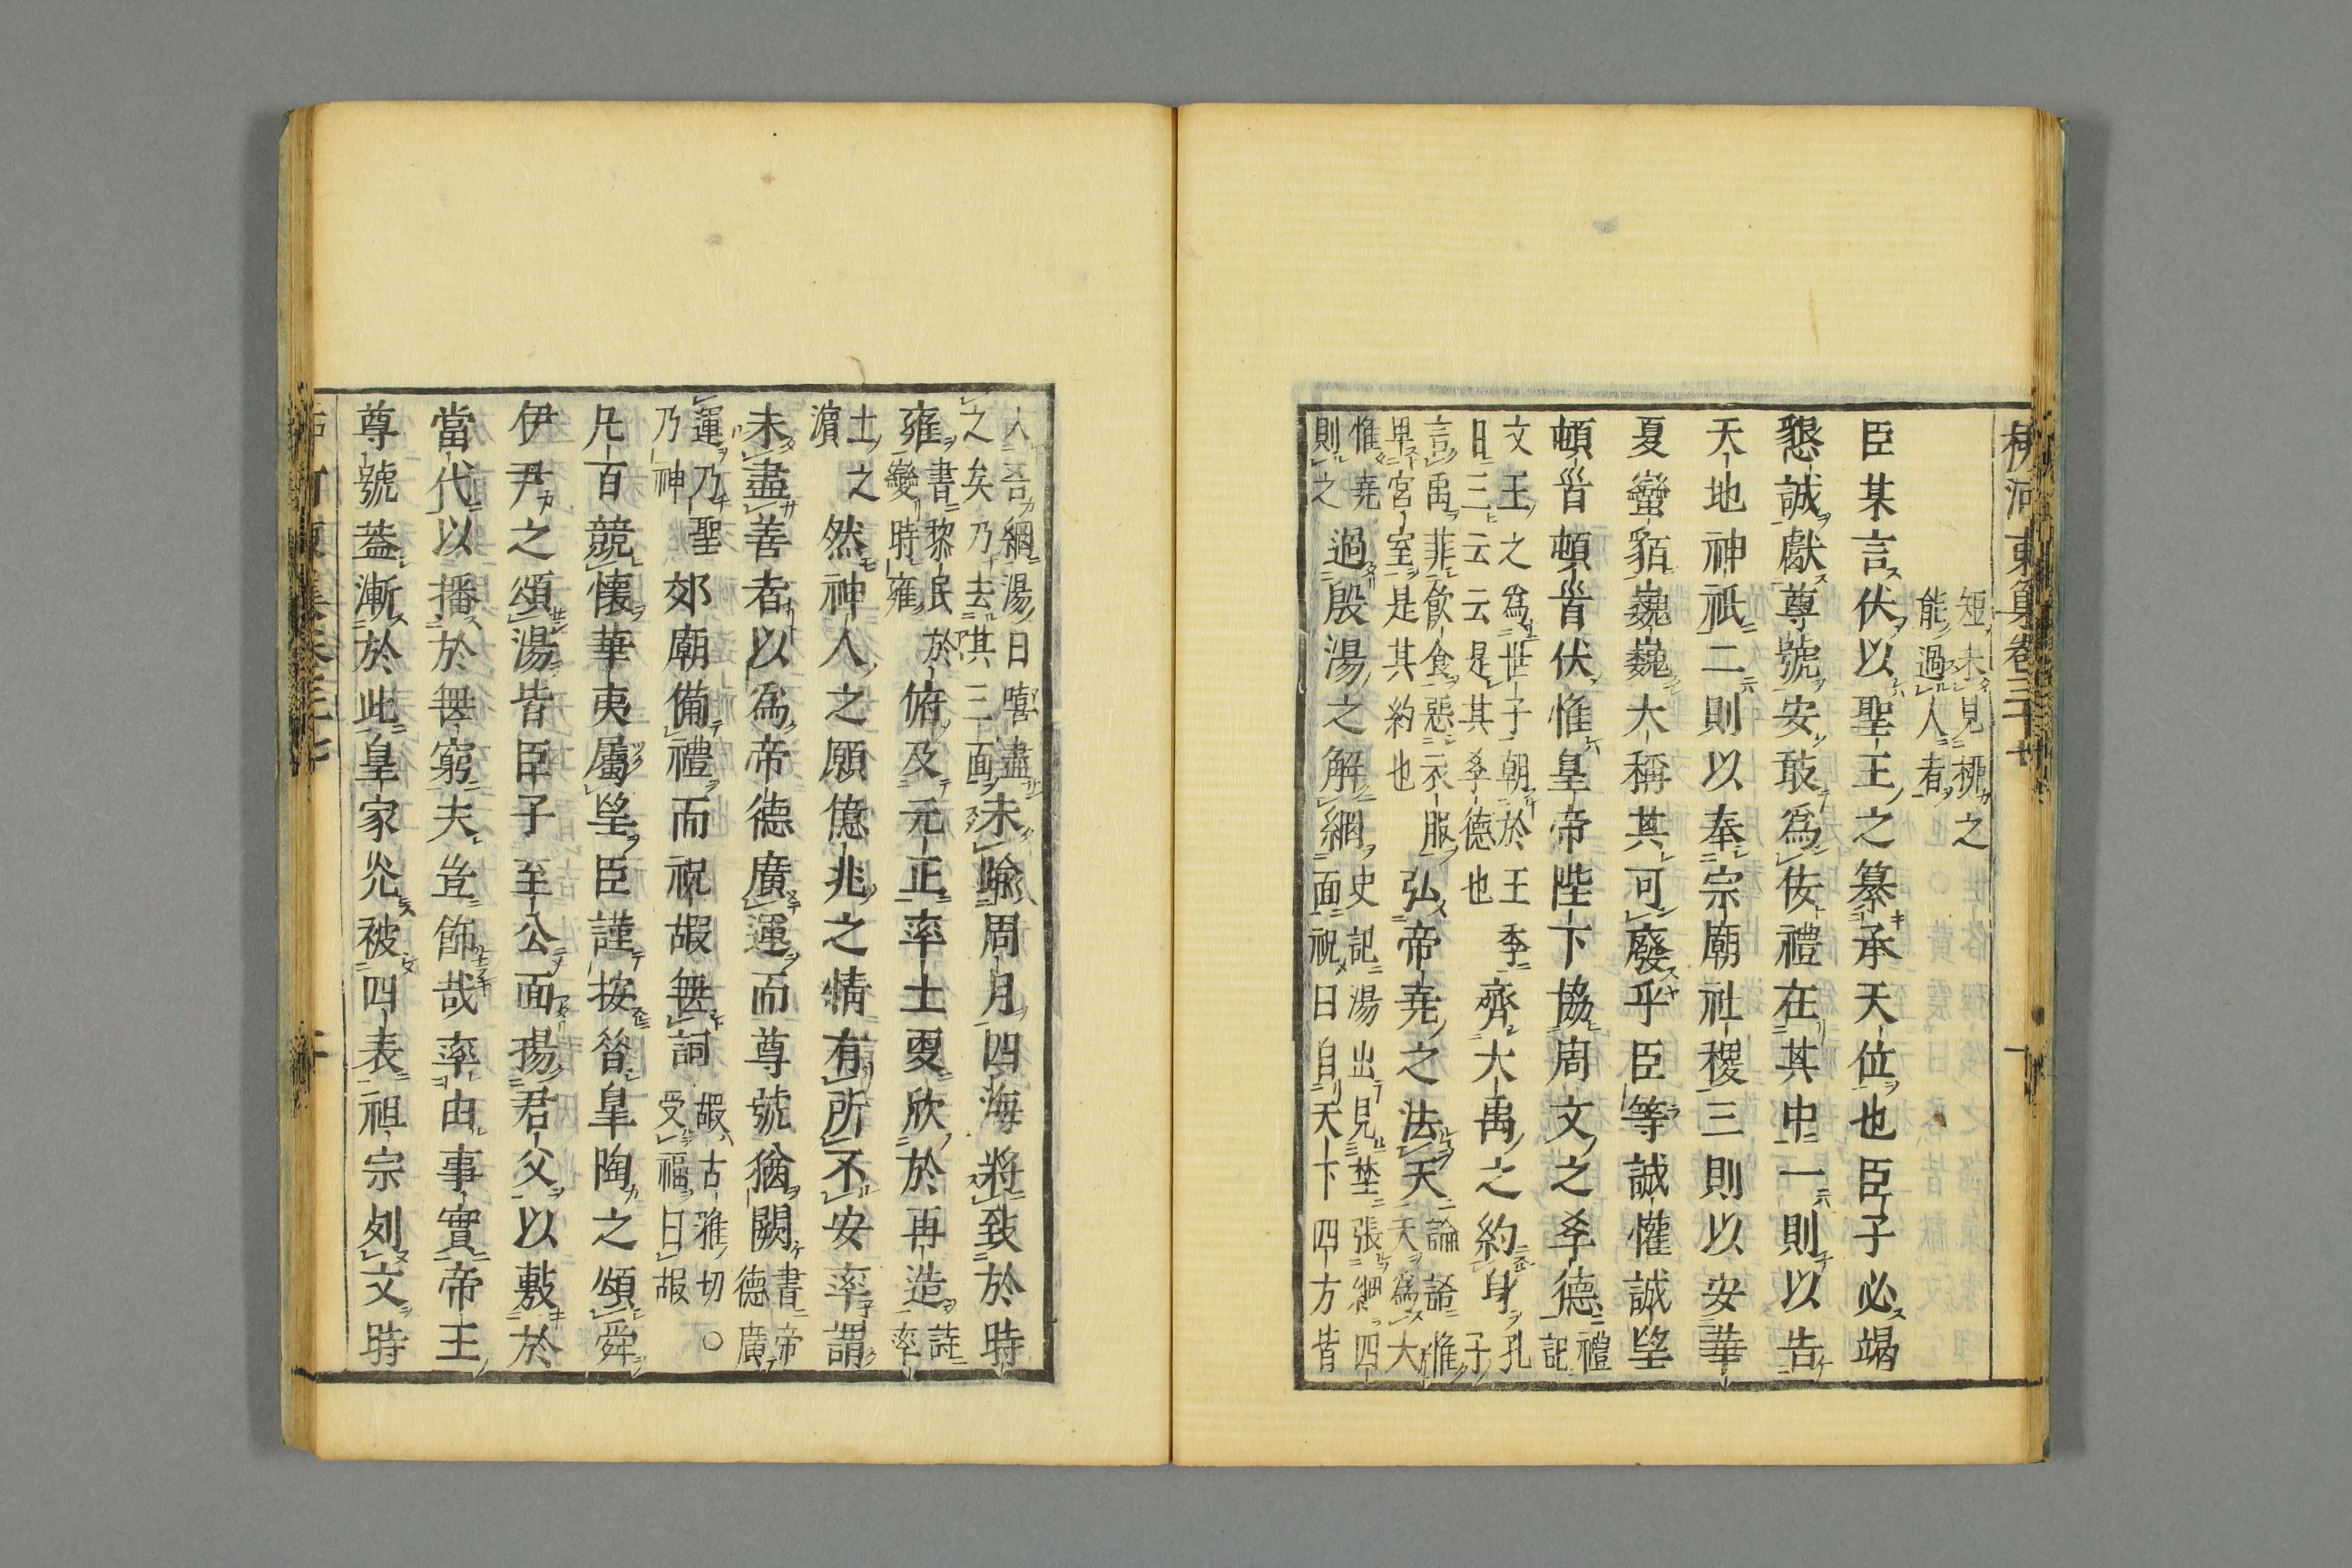 柳河東集卷三十七 十
短未見柳之
能過人者
臣某言伏以聖王之纂承天位也臣子必竭
懇誠獻尊號安敢爲佞禮在其中一則以告
天地神祇二則以奉宗廟社稷三則以安華
夏蠻貊巍巍大稱其可廢乎臣等誠懽誠望
頓首頓首伏惟皇帝陛下協周文之孝德 禮記
文王之爲世子朝於王季 日三云云是其孝德也 齊大禹之約身 孔子
言禹菲飲食惡衣服 卑宮室是其約也 弘帝堯之法天 論語惟 天爲大
惟堯 則之 過殷湯之解網 史記湯出見埜張網四 面祝曰自天下四方皆
入吾網湯曰嘻盡 之矣乃去其三面 未踰周月四海將致於時
雍 書黎民於 變時雍 俯及元正率土更欣於再造 詩率
土之 濵 然神人之願億兆之情有所不安率謂
未盡善者以爲帝德廣運而尊號猶闕 書帝 德廣
運乃聖 乃神 郊廟備禮而祝嘏無詞 嘏古雅切○ 受福曰嘏
凡百競懷華夷屬望臣謹按咎皐陶之頌舜
伊尹之頌湯皆臣子至公面揚君父以敷於
當代以播於無窮夫豈飾哉率由事實帝王
尊號葢漸於此皇家光被四表祖宗列文時